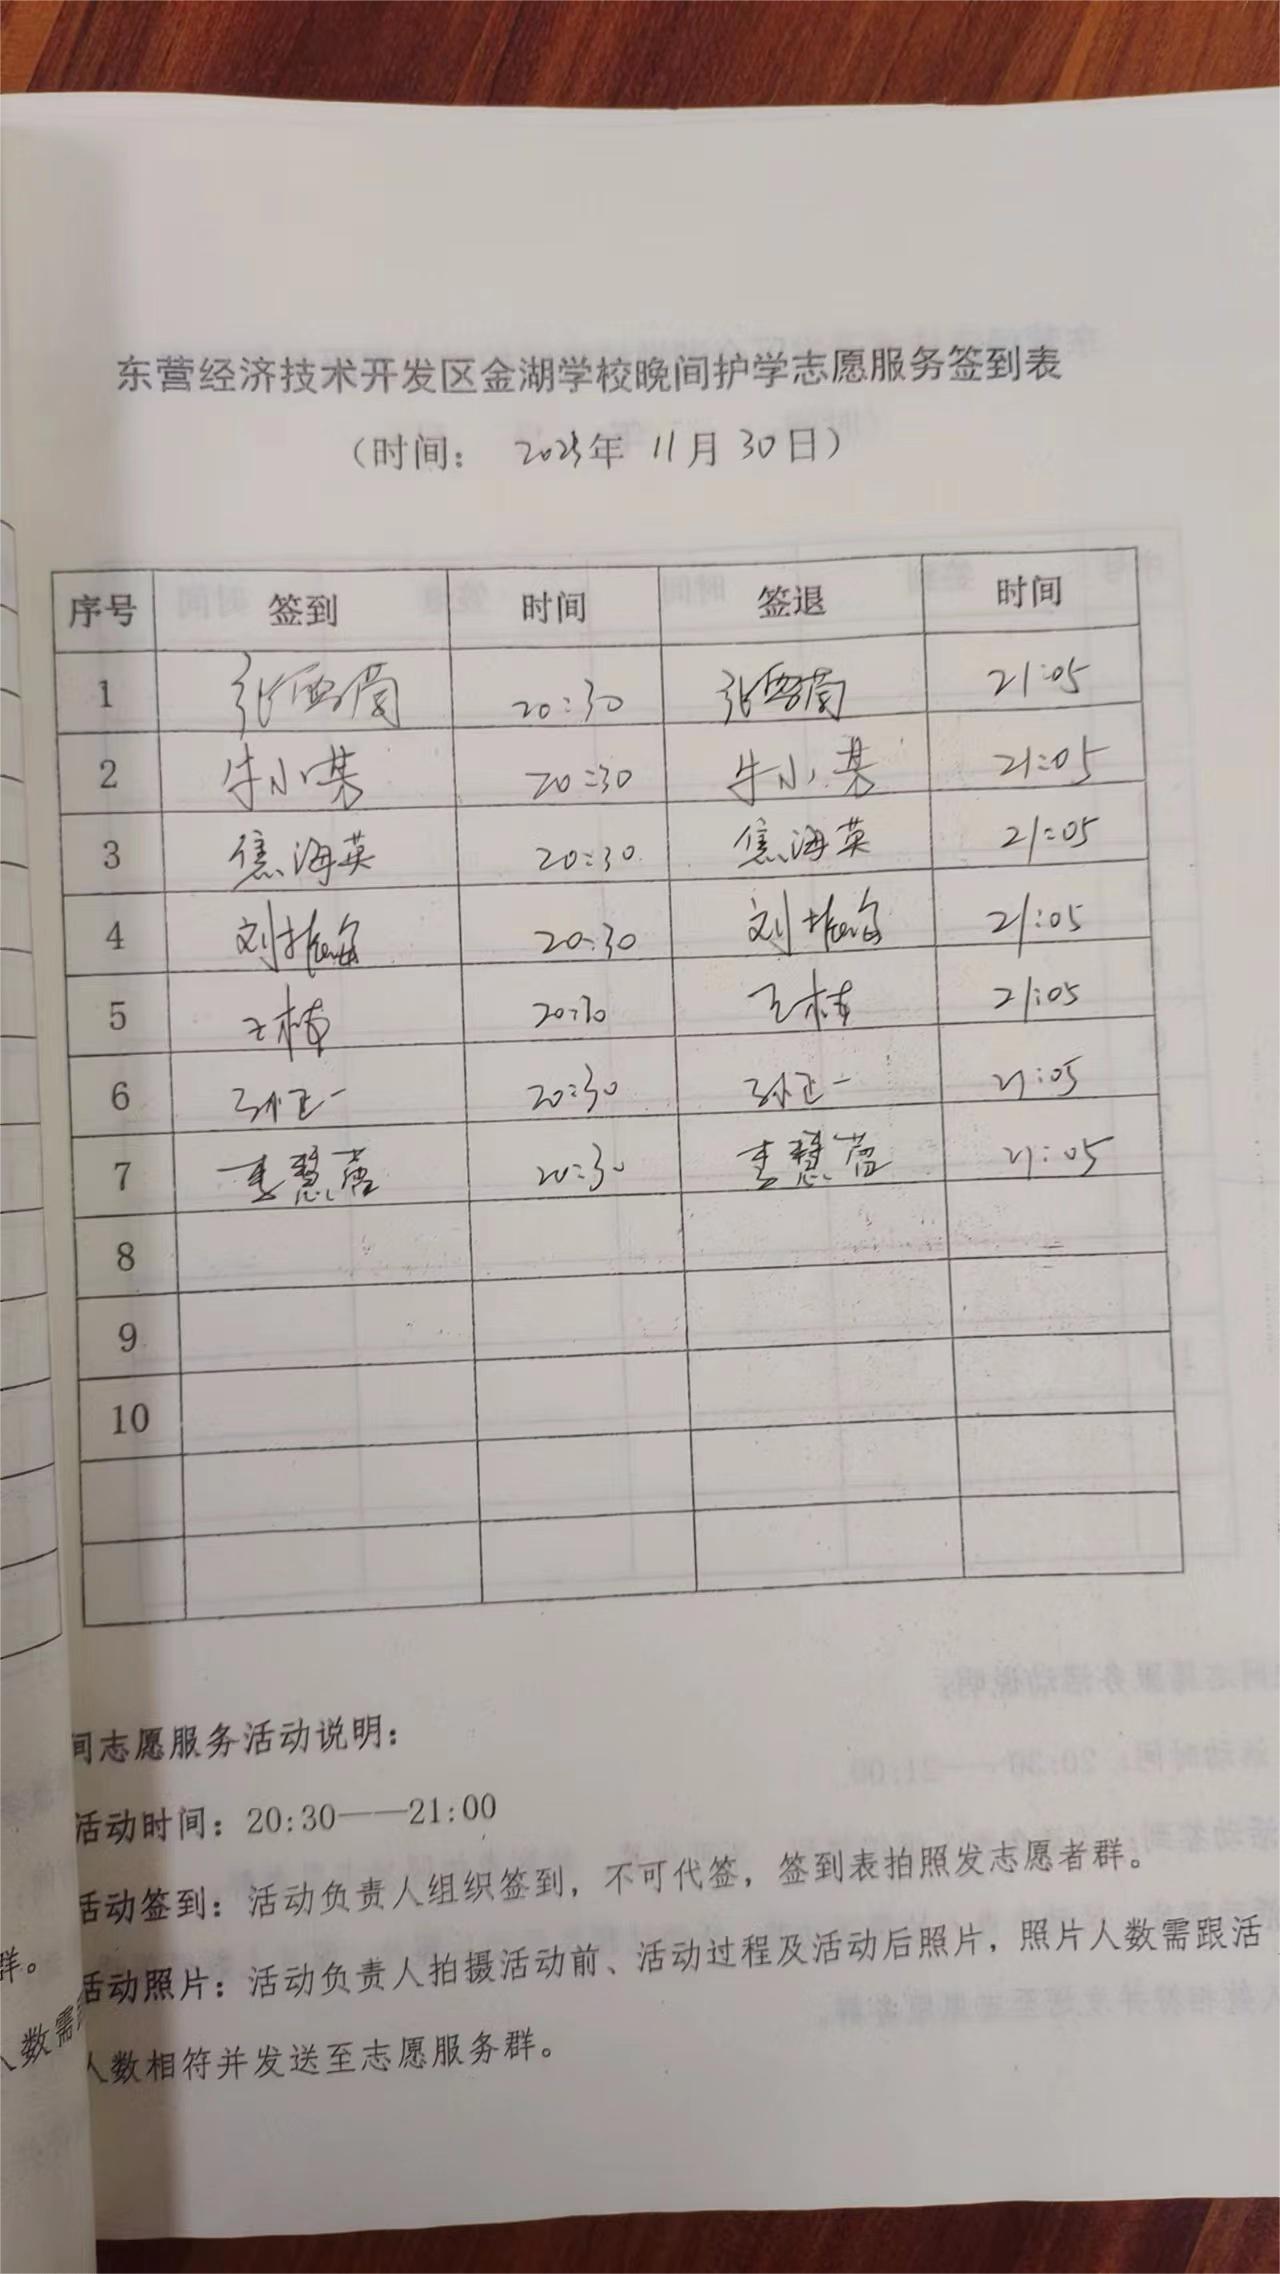 东营经济技术开发区金湖学校晚间护学志愿服务签到表
（时间： 2023年 11月 30日）
序号 签到 时间 签退 时间
1 20:30 21:05
2 牛小 20:30 牛小 21:05
3 焦海英 20:30 焦海英 21:05
4 刘 20:30 刘 21:05
5 王栋 20:30 王栋 21:05
6 孙正一 20:30 孙正一 21:05
7 李慧 20:30 李慧 21:05
8
9
10
间志愿服务活动说明：
活动时间：20:30——21:00
活动签到：活动负责人组织签到，不可代签，签到表拍照发志愿者群。
活动照片：活动负责人拍摄活动前、活动过程及活动后照片，照片人数需跟活
人数相符并发送至志愿服务群。
群。
人数需